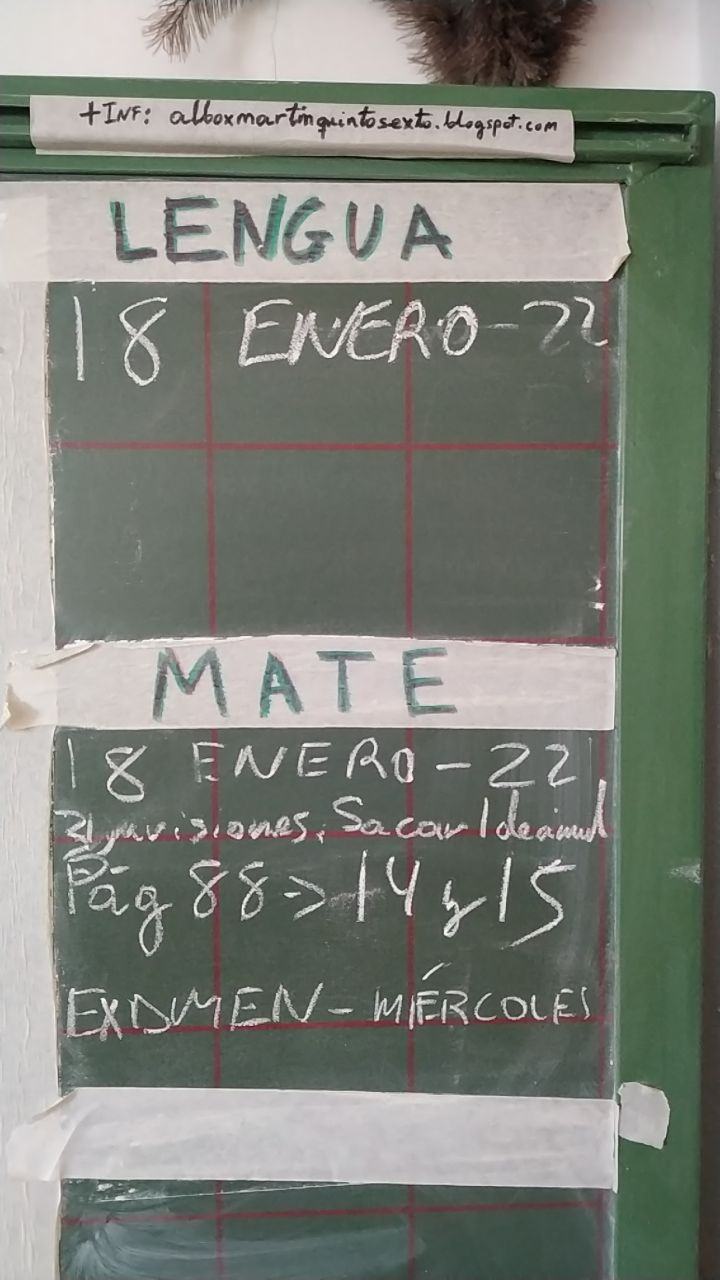 +INF: alboxmartinquintosexto.blogspot.com
LENGUA
18 ENERO-22
MATE
18 ENERO-22
Sacar 1 decimal
Pág 88->14 y 15
EXAMEN-MIÉRCOLES